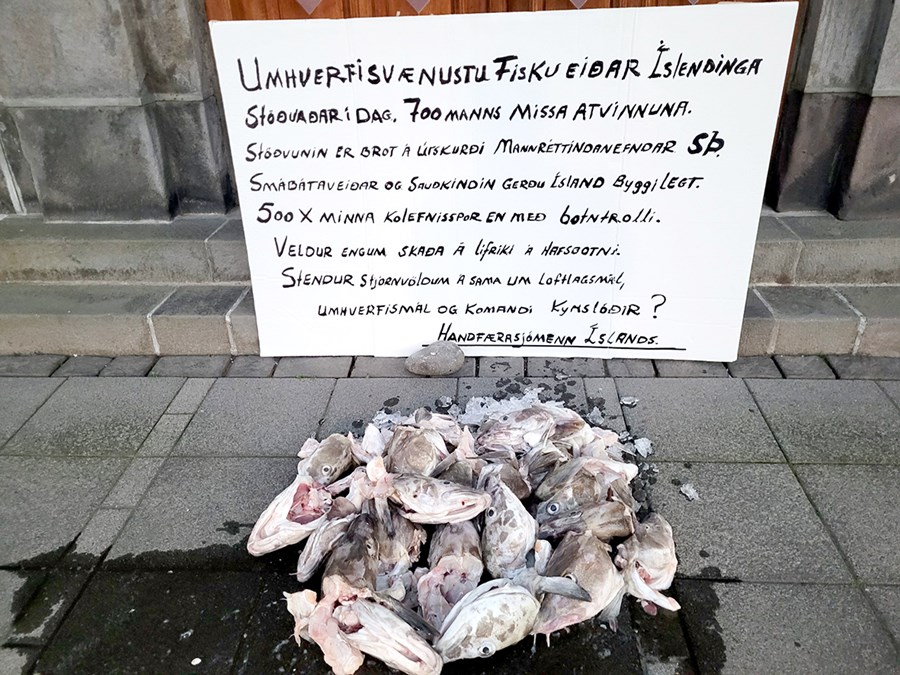 UMHVERFISVÆNUSTU FISKVEIÐAR ÍSLENDINGA
STÖÐVAÐAR Í DAG. 700 MANNS MISSA ATVINNUNA.
STÖÐVUNIN ER BROT Á ÚTSKURÐI MANNRÉTTINDANEFNDAR SÞ.
SMÁBÁTAVEIÐAR OG SAUÐKINDIN GERÐU ÍSLAND BYGGILEGT.
500 X MINNA KOLEFNISSPOR EN MEÐ botntrolli.
VELDUR ENGUM SKAÐA Á LÍFRÍKI Á HAFSBOTNI.
STENDUR STJÓRNVÖLDUM Á SAMA UM LOFTLAGSMÁL,
UMHVERFISMÁL OG KOMANDI KYNSLÓÐIR?
HANDFÆRASJÓMENN ÍSLANDS.